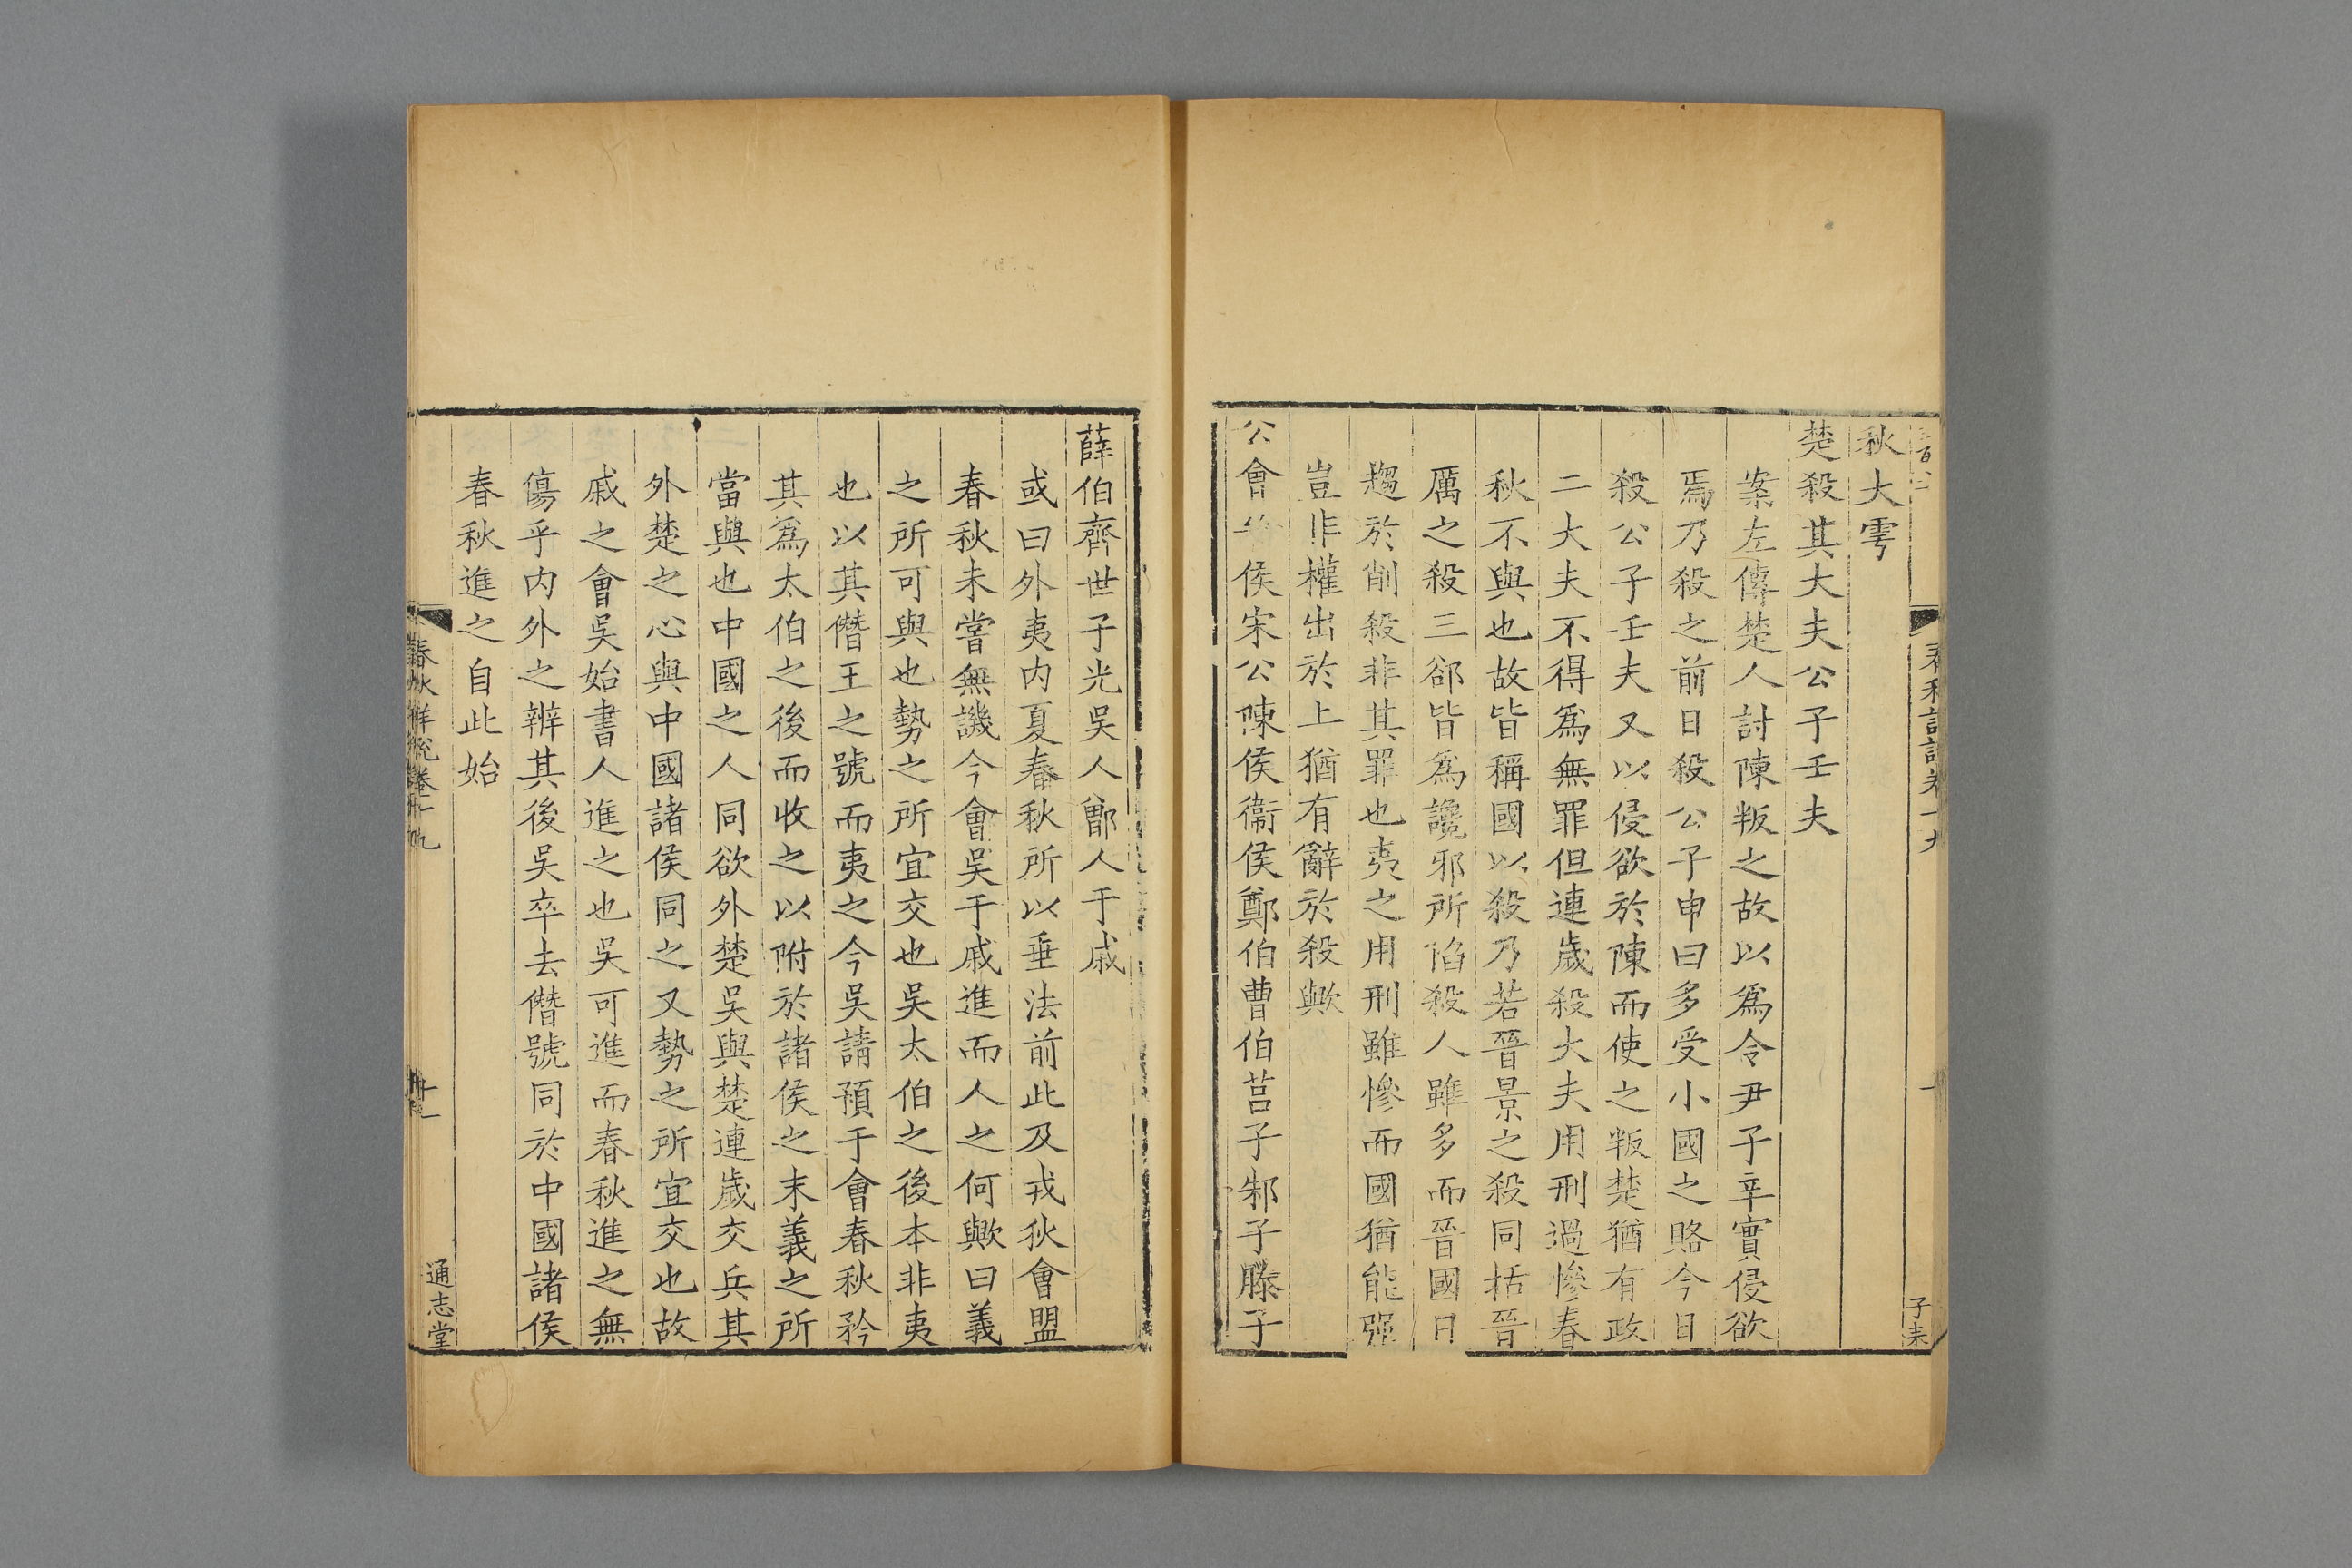 秋大雩
楚殺其大夫公子壬夫
案左傳楚人討陳叛之故以爲令尹子辛實侵欲
焉乃殺之前日殺公子申曰多受小國之賂今日
殺公子壬夫又以侵欲於陳而使之叛楚猶有政
二大夫不得爲無罪但連歲殺大夫用刑過慘春
秋不與也故皆稱國以殺乃若晉景之殺同括晉
厲之殺三郤皆爲讒邪所陷殺人雖多而晉國日
趨於削殺非其罪也夷之用刑雖慘而國猶能强
豈非權出於上猶有辭於殺歟
公會侯宋公陳侯衞侯鄭伯曹伯莒子邾子滕子
子耒
薛伯齊世子光吳人鄫人于戚
或曰外夷内夏春秋所以垂法前此及戎狄會盟
春秋未嘗無譏今會吳于戚進而人之何歟曰義
之所可與也勢之所宜交也吳太伯之後本非夷
也以其僭王之號而夷之今吳請預于會春秋矜
其爲太伯之後而收之以附於諸侯之末義之所
當與也中國之人同欲外楚吳與楚連歲交兵其
外楚之心與中國諸侯同之又勢之所宜交也故
戚之會吳始書人進之也吳可進而春秋進之無
傷乎内外之辨其後吳卒去僭號同於中國諸侯
春秋進之自此始
春秋詳說卷十九
十一
通志堂